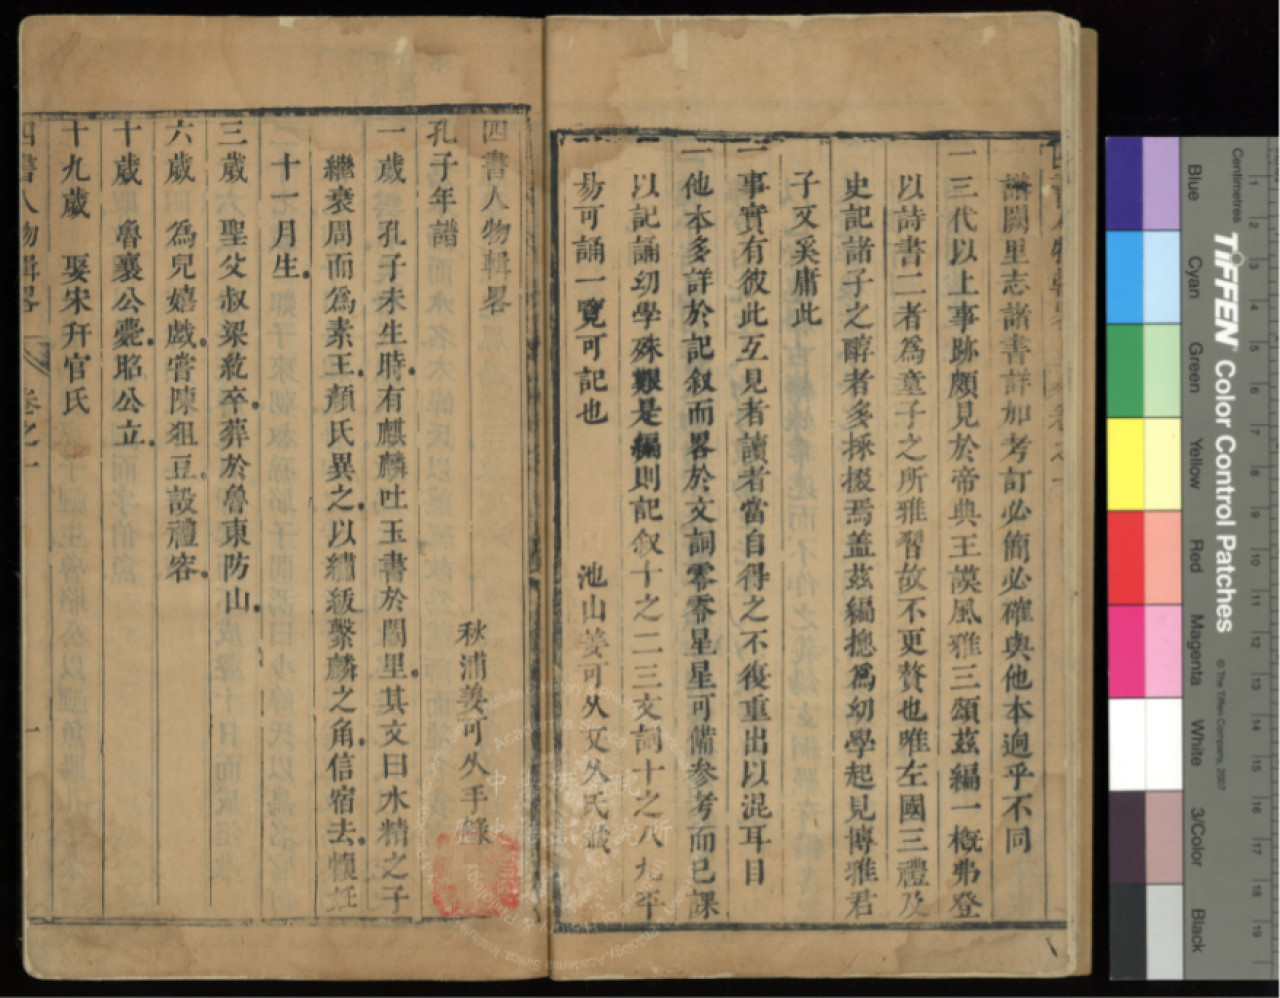 譜闕里志諸書詳加考訂必簡必確與他本逈乎不同
一三代以上事跡頗見於帝典王謨風雅三頌茲編一概弗登
以詩書二者為童子之所雅習故不更贅也唯左國三禮及
史記諸子之醇者多採掇焉蓋茲編摠為幼學起見博雅君
子又奚庸此
一事實有彼此互見者讀者當自得之不復重出以混耳目
一他本多詳於記叙而畧於文詞零零星星可備參考而已課
以記誦幼學殊艱是編則記叙十之二三文詞十之八九平
易可誦一覽可記也
池山姜可久文久氏識
四書人物輯畧
秋浦姜可久手錄
孔子年譜
一歲 孔子未生時有麒麟吐玉書於闕里其文曰水精之子
繼衰周而為素王顏氏異之以繡紱繫麟之角信宿去懷妊
十一月生
三歲 聖父叔梁紇卒葬於魯東防山
六歲 為兒嬉戲嘗陳俎豆設禮容
十歲 魯襄公薨昭公立
十九歲 娶宋幵官氏
四書人物輯畧 卷之一 一
Centimetres
TIFFEN Color Control Patches
© The Tiffen Company, 2007
Blue Cyan Green Yellow Red Magenta White 3/Color Black
1 2 3 4 5 6 7 8 9 10 11 12 13 14 15 16 17 18 19